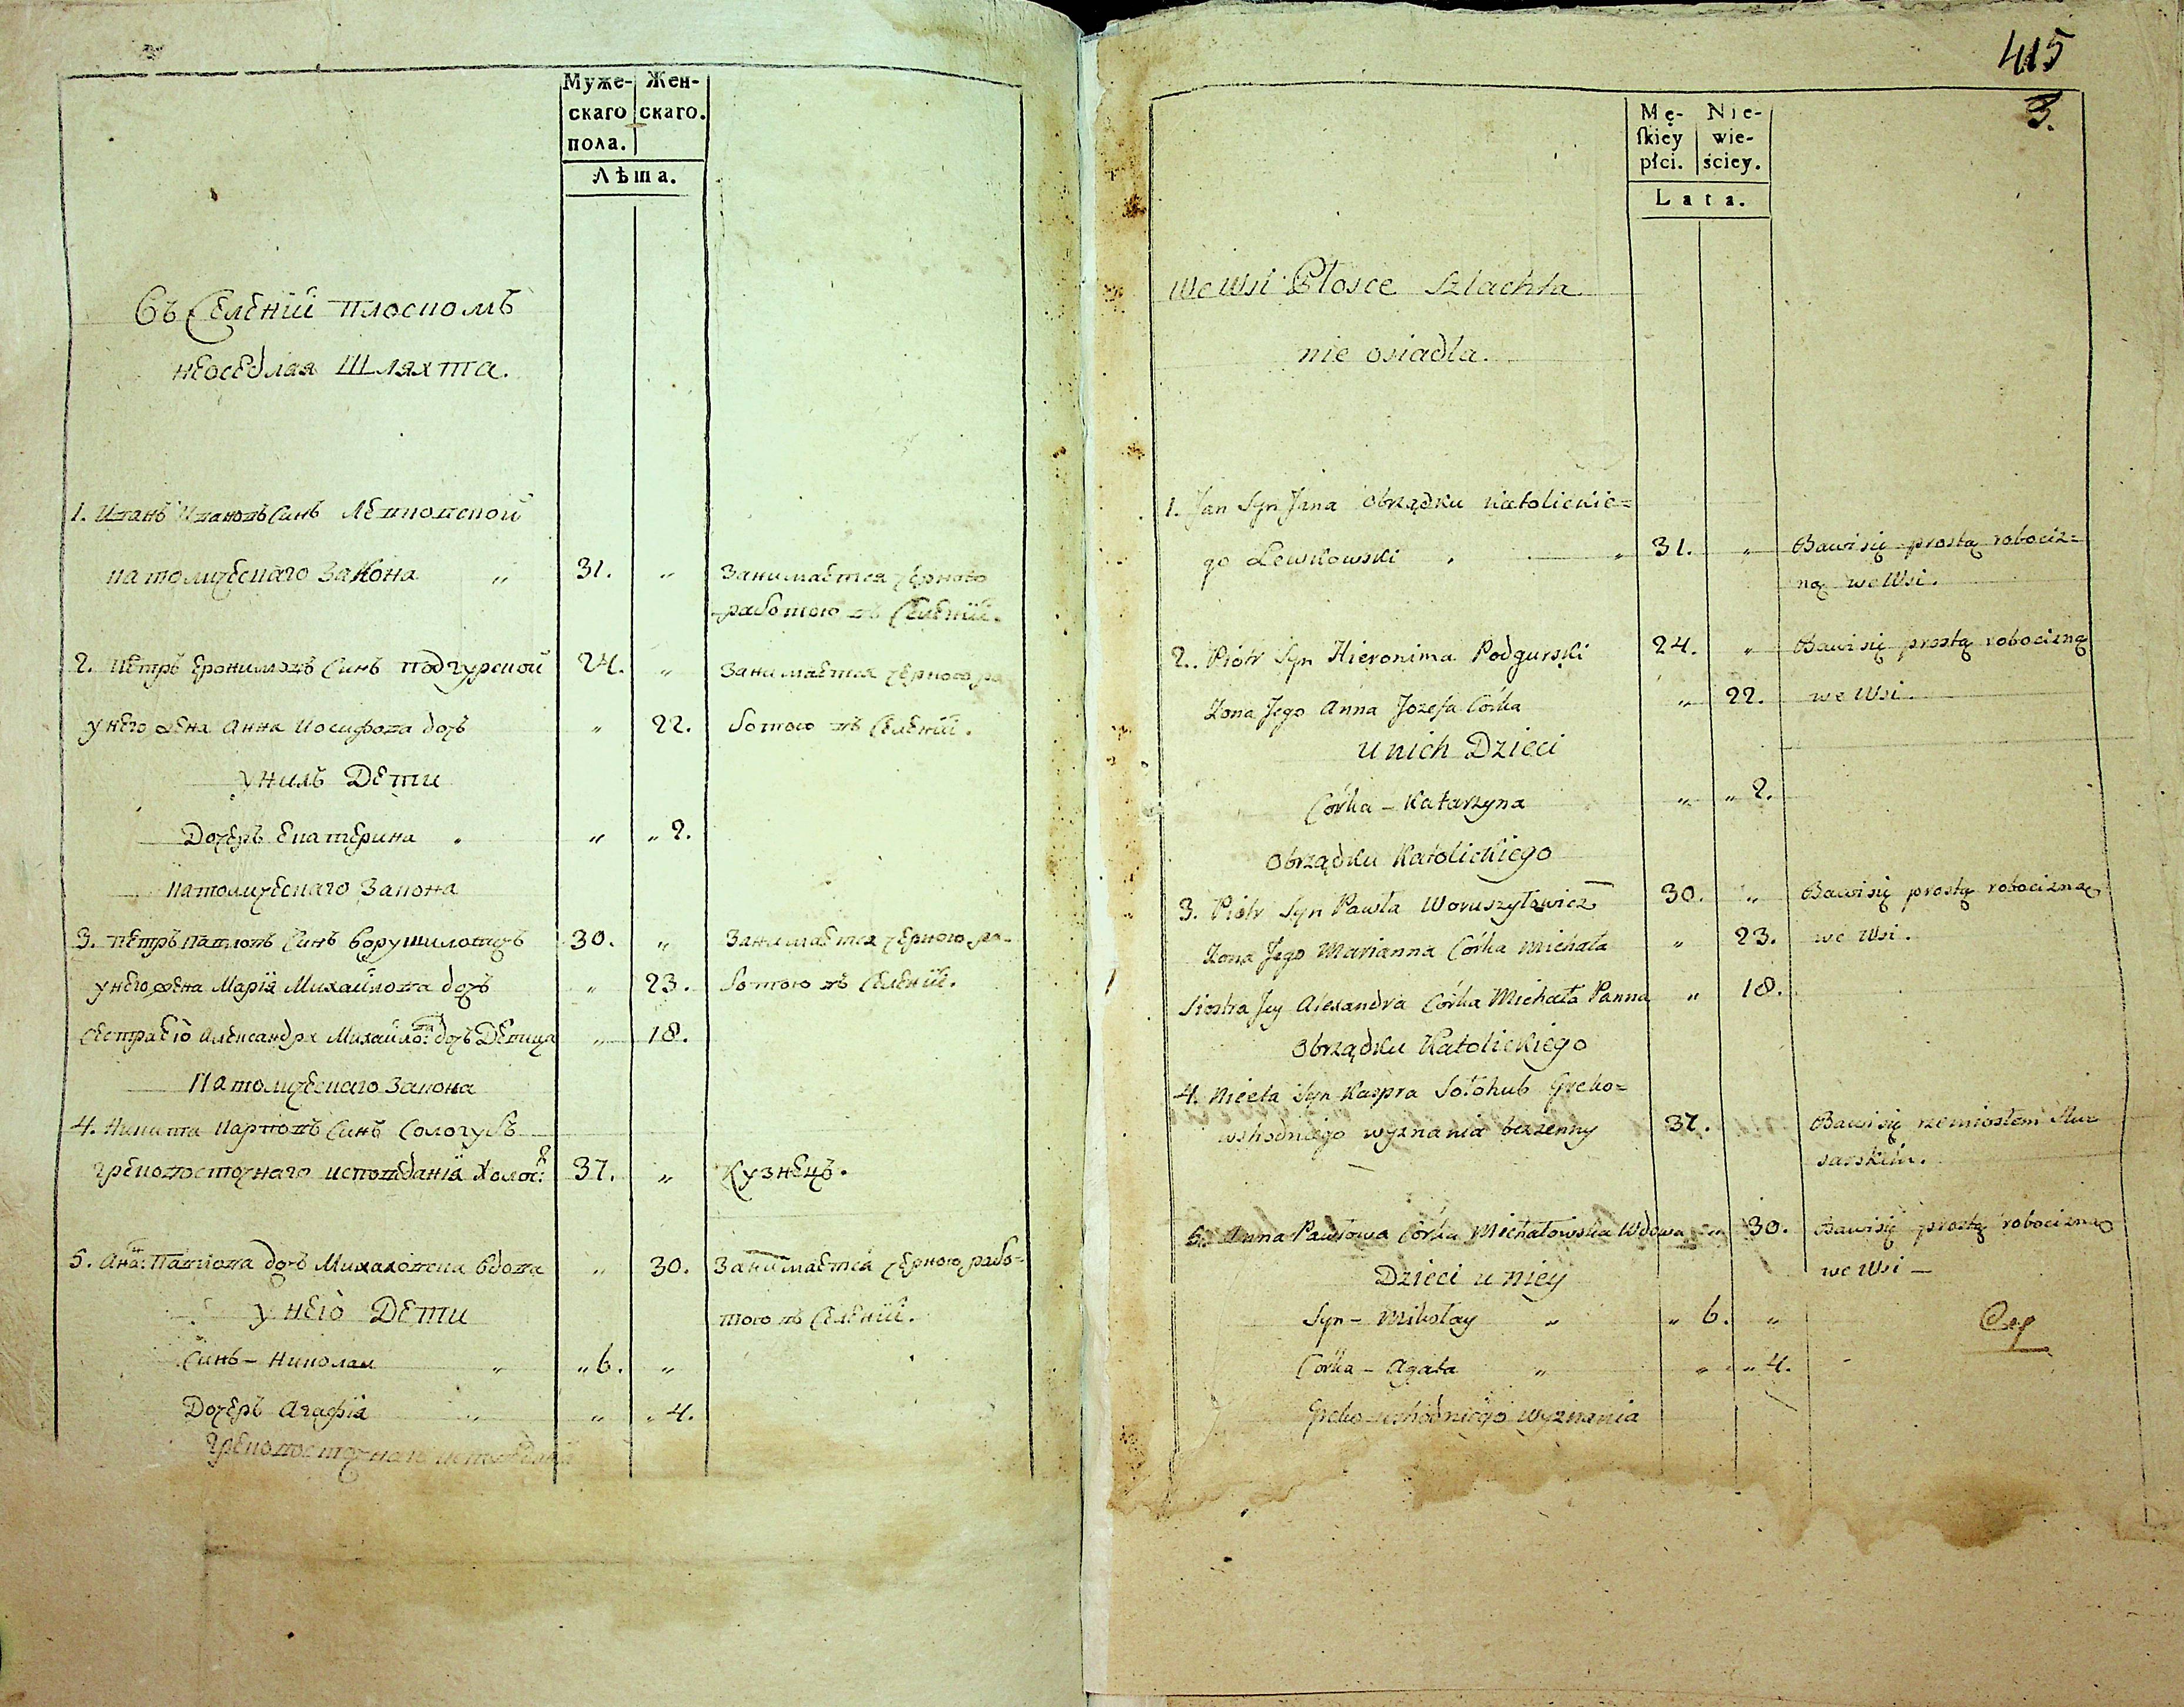 Муже- Жен-
скаго скаго.
пола.
Лѣта.
Въ Селенiи плоскомъ
неоседлая Шляхта.
1. Иванъ Ивановъ Синъ Левковской
католическаго Закона „ 31. „ Занимается черною
работою въ Селенiи.
2. Петръ Еронимовъ Синъ Подгурской 24. „ Занимается черною ра
у него жена Анна Иосифова дочъ „ 22. ботою въ Селенiи.
у нихъ Дети
Дочеръ Екатерина „ „ „ 2.
католическаго Закона
3. Петръ Павловъ Синъ Ворушиловичъ 30. „ Занимается черною ра-
у него жена Марiя Михайлова дочъ „ 23. ботою въ Селенiи.
Сестра Ею Александра Михайло: ва дочъ Девица „ 18.
Католическаго Закона
4. Никита Карповъ Синъ Сологубъ
грековосточнаго исповеданiя Холос: 37. „ Кузнецъ.
5. Анна Павлова дочъ Михаловска Вдова „ 30. Занимается черною рабо-
у нею Дети тою въ Селенiи.
Синъ - Николай „ „ 6. „
Дочеръ Агафiя „ „ „ 4.
Грековосточнаго исповеданiя
415
3.
Mę- Nie-
ſkiey wie-
płci. ściey.
Lata.
we Wsi Płosce Szlachta
nie osiadla.
1. Jan Syn Jana Obrządku Katolickie=
go Lewkowski „ 31. „ Bawi się prostą robociz=
ną we Wsi.
2. Piotr Syn Hieronima Podgurski 24. „ Bawi się prostą robocizną
Zona Jego Anna Jozefa Córka „ 22. we Wsi.
u nich Dzieci
Córka - Katarzyna „ „ 2.
Obrządku Katolickiego
3. Piotr Syn Pawła Woruszyłowicz 30. „ Bawi się prostą robocizną
Zona Jego Marianna Córka Michała „ 23. we Wsi.
Siostra Jey Alexandra Córka Michała Panna „ 18.
Obrządku Katolickiego
4. Niceta Syn Kaspra Sołohub Greko=
wshodniego wyznania bezzenny 37. Bawi się rzemiosłem Slu
sarskim.
5. Anna Pawłowa Córka Michałowska Wdowa „ 30. Bawi się prostą robocizną
Dzieci u niey we Wsi —
Syn - Mikołay „ „ 6. „
Corka - Agata „ „ „ 4.
Greko-wshodniego wyznania